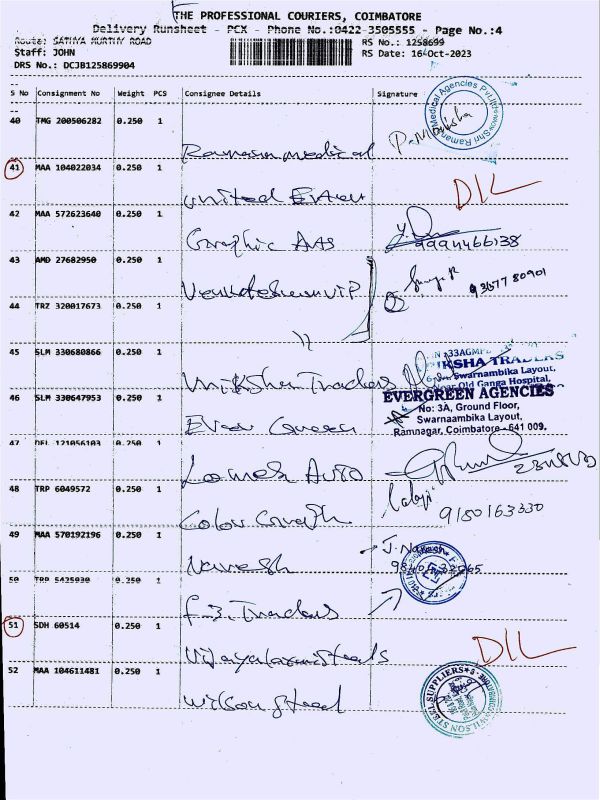 THE PROFESSIONAL COURIERS, COIMBATORE
Delivery Runsheet - PCX - Phone No.:0422-3505555 - Page No.:4
Route: SATHYA MURTHY ROAD
RS No.: 1258699
Staff: JOHN
RS Date: 16-Oct-2023
DRS No.: DCJB125869904
S No Consignment No Weight PCS Consignee Details Signature
Medical Agencies Pvt Ltd
40 TMG 200506282 0.250 1
Ramanan medical
41 MAA 104022034 0.250 1
DIL
United
42 MAA 572623640 0.250 1
Graphic Arts
43 AMD 27682950 0.250 1
9365778 0901
Venkateshwara VIP
44 TRZ 320017673 0.250 1
45 SLM 330680866 0.250 1
33AGMP
IKSHA TRADERS
Swarnambika Layout,
Near Old Ganga Hospital,
Traders
46 SLM 330647953 0.250 1
EVERGREEN AGENCIES
No: 3A, Ground Floor,
Swarnaambika Layout,
Ramnagar, Coimbatore - 641 009.
Ever Green
47 DEL 121056103 0.250 1
Auto
48 TRP 6049572 0.250 1
Balaji
9180163330
Color Graph
49 MAA 570192196 0.250 1
J. Naresh
Naresh
50 TRP 5425930 0.250 1
F.3. Traders
51 SDH 60514 0.250 1
DIL
Vijayalaxmi Steels
52 MAA 104611481 0.250 1
WILSON STEEL SUPPLIERS
Wilson Steel